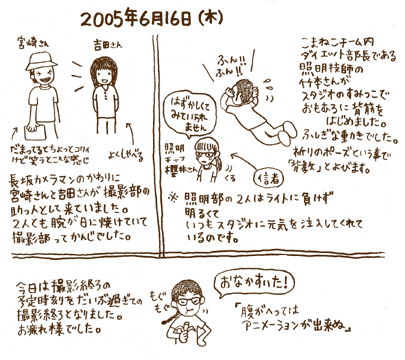 2005年6月16日(木)
宮崎さん
吉田さん
だまってるとちょっとコワイ
けど笑うとこんな感じ
よくしゃべる
長坂カメラマンのかわりに
宮崎さんと吉田さんが撮影部の
助っ人として来ていました。
2人とも腕が日に焼けていて
撮影部ってかんじでした。
ふん!!
ふん!!
はずかしくて
みていられ
ません
照明
チーフ
櫻井さん
くる
信者
こまねこチーム内
ダイエット部長である
照明技師の
竹本さんが
スタジオのすみっこで
おもむろに背筋を
はじめました。
ふしぎな動きでした。
祈りのポーズという事で
「背教」とよびます。
※ 照明部の2人はライトに負けず
明るくて
いつもスタジオに元気を注入してくれて
いるのです。
今日は撮影終了の
予定時刻をだいぶ過ぎての
撮影終了となりました。
お疲れ様でした。
もぐ
もぐ
おなかすいた!
「腹がへっては
アニメーションが出来ぬ」